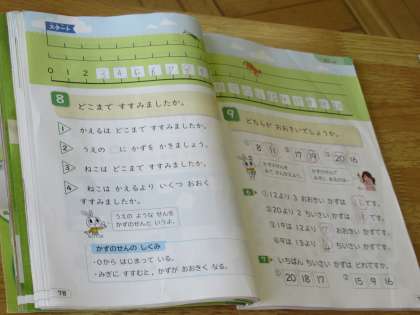 スタート
0 1 2 3 4 5 6 7 8 9
8 どこまで すすみましたか。
1 かえるは どこまで すすみましたか。
2 うえの に かずを かきましょう。
3 ねこは どこまで すすみましたか。
4 ねこは かえるより いくつ おおく
すすみましたか。
うえの ような せんを
かずのせんと いうよ。
かずのせんの しくみ
・0から はじまって いる。
・みぎに すすむと、かずが おおきく なる。
78
9 どちらが おおきいでしょうか。
① 8 11 ② 17 19 ③ 20 16
6 ①12より 3 おおきい かずは です。
②20より 2 ちいさい かずは です。
③19は 12より おおきい かずです。
④9は 13より ちいさい かずです。
7 いちばん ちいさい かずは どれですか。
① 20 18 17 ② 15 9 16